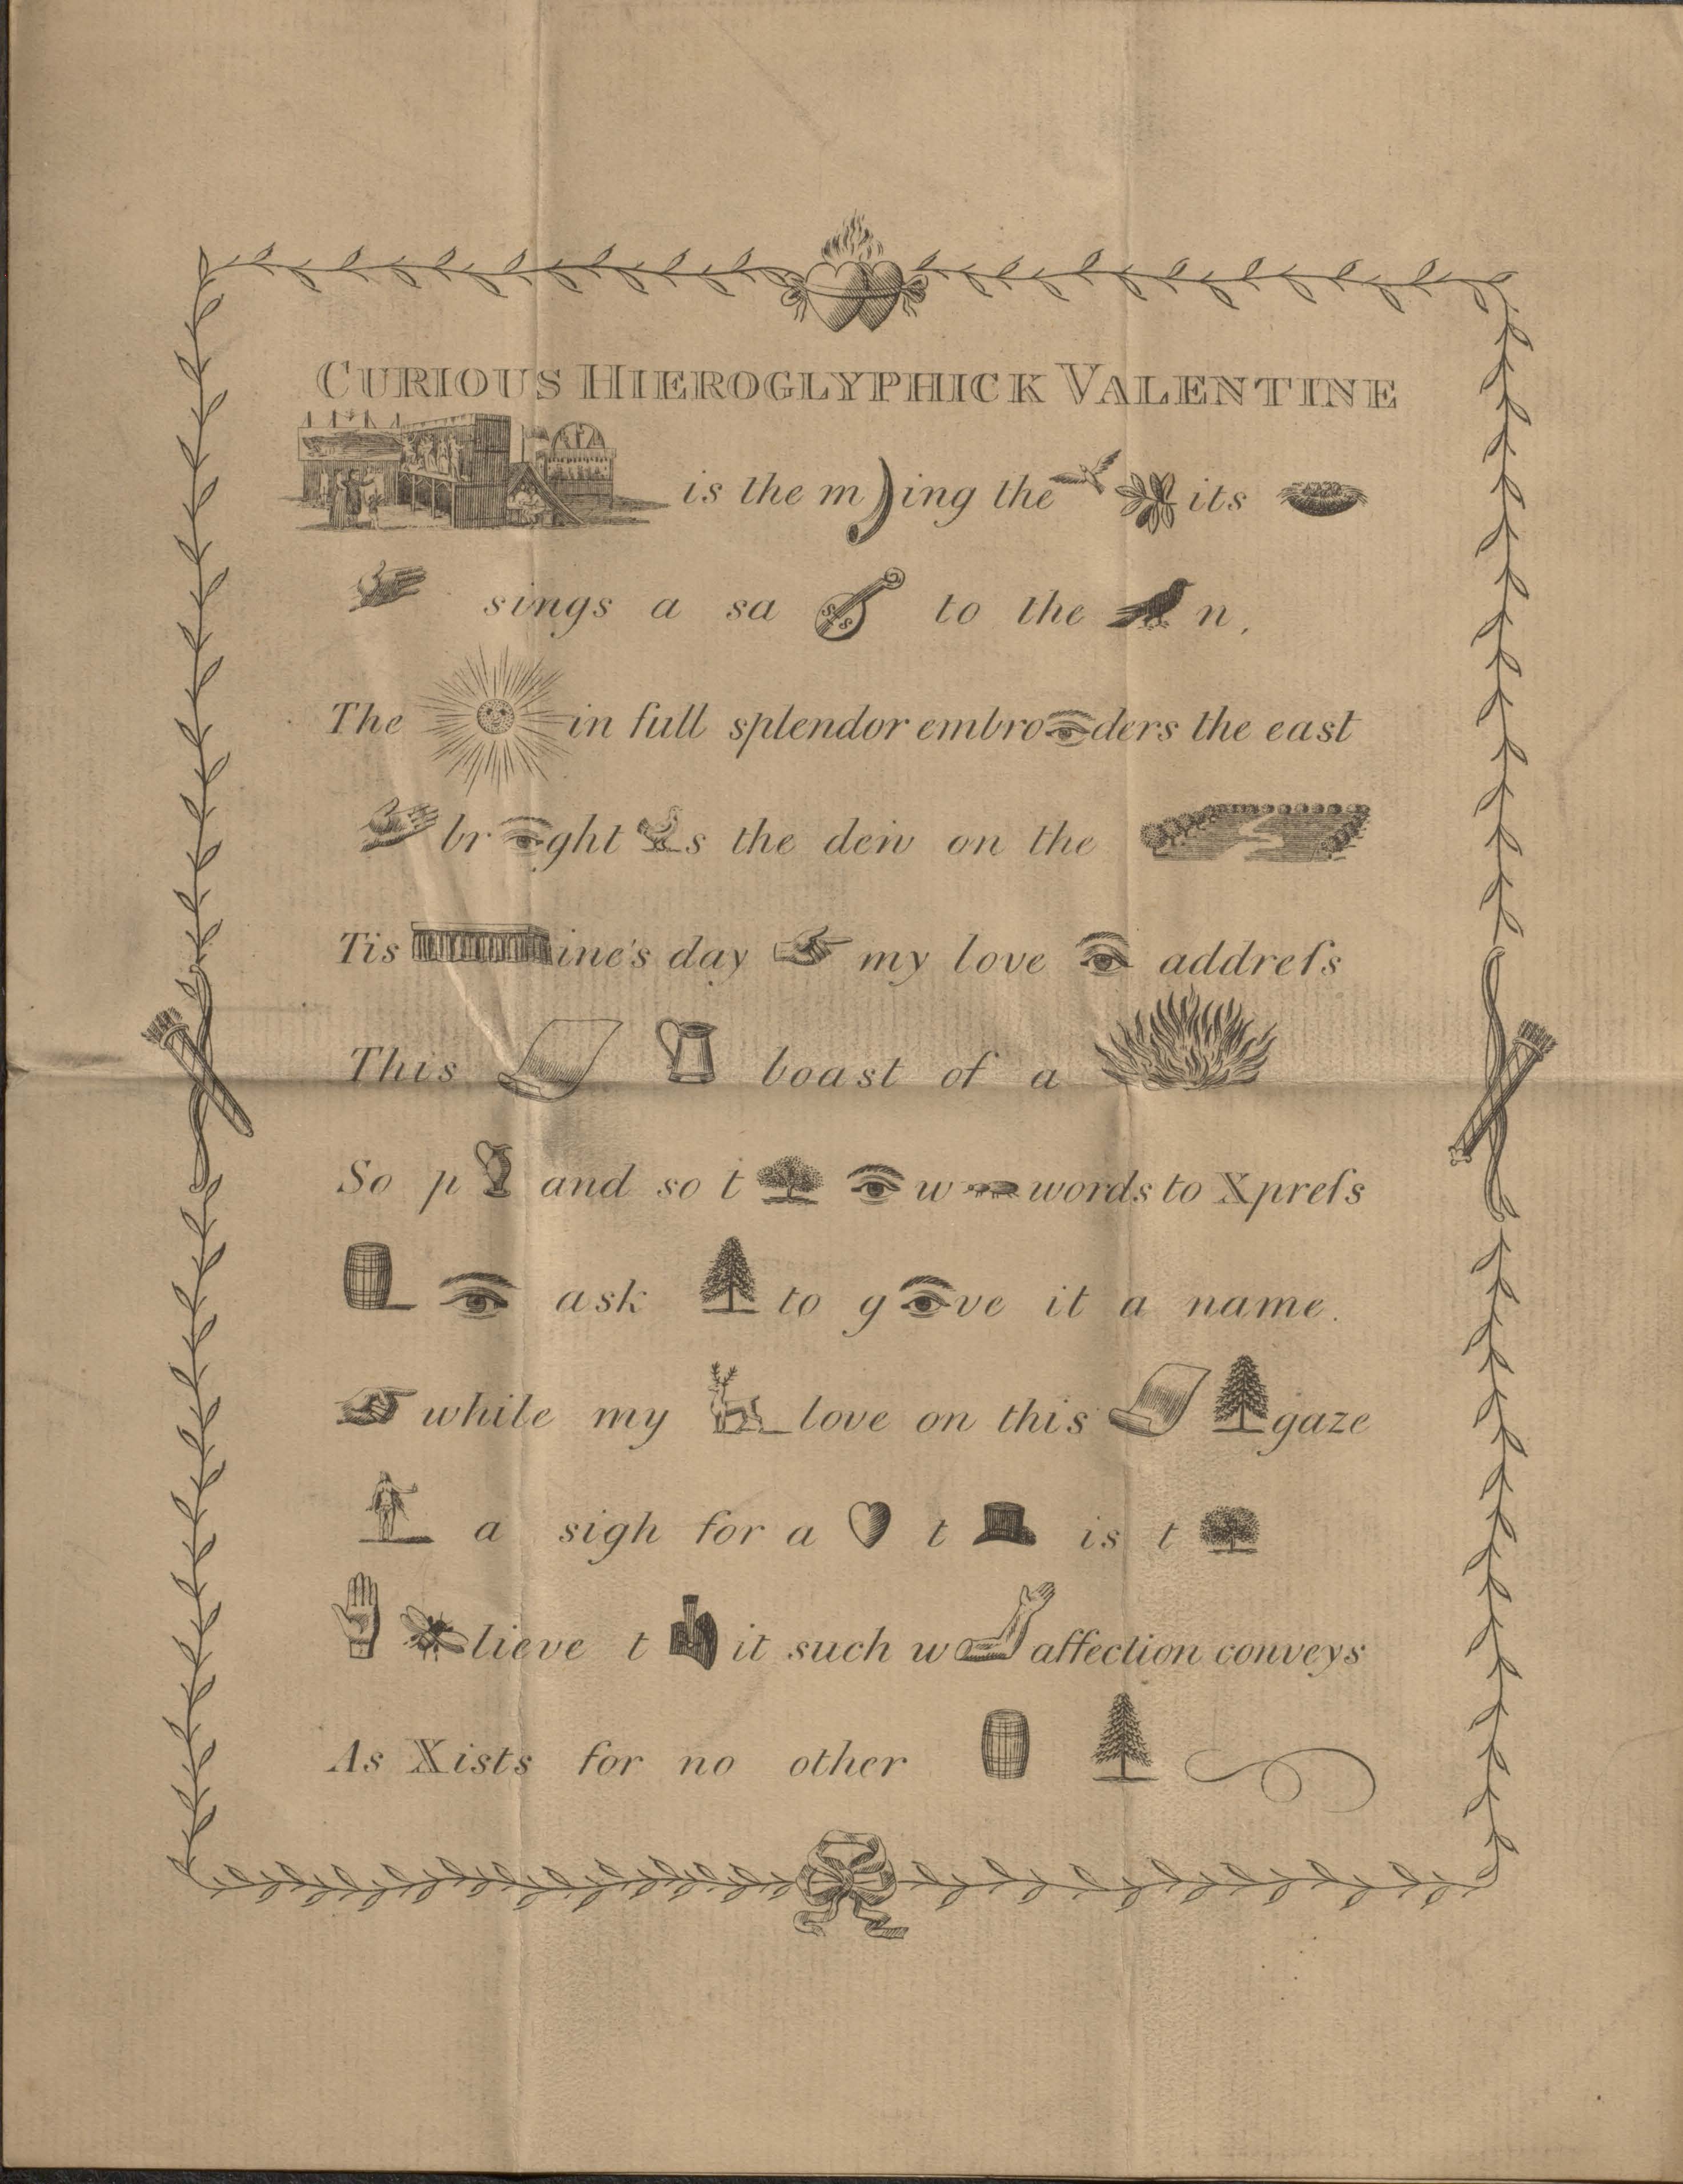 CURIOUS HIEROGLYPHICK VALENTINE
is the m ing the its
sings a sa to the n,
The in full splendor embro ders the east
br ght s the dew on the
Tis ine's day my love addreſs
This boast of a
So p and so t w words to Xpreſs
ask to g ve it a name.
while my love on this gaze
a sigh for a t is t
lieve t it such w affection conveys
As Xists for no other